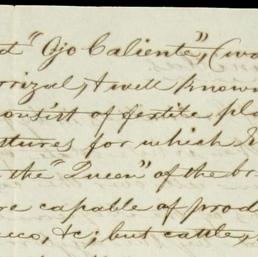 "Ojo Caliente", (wa
rrizal, & well known
onsist of fertile pla
stures for which
the "Queen" of the br
re capable of prod
cco, &c; but cattle,